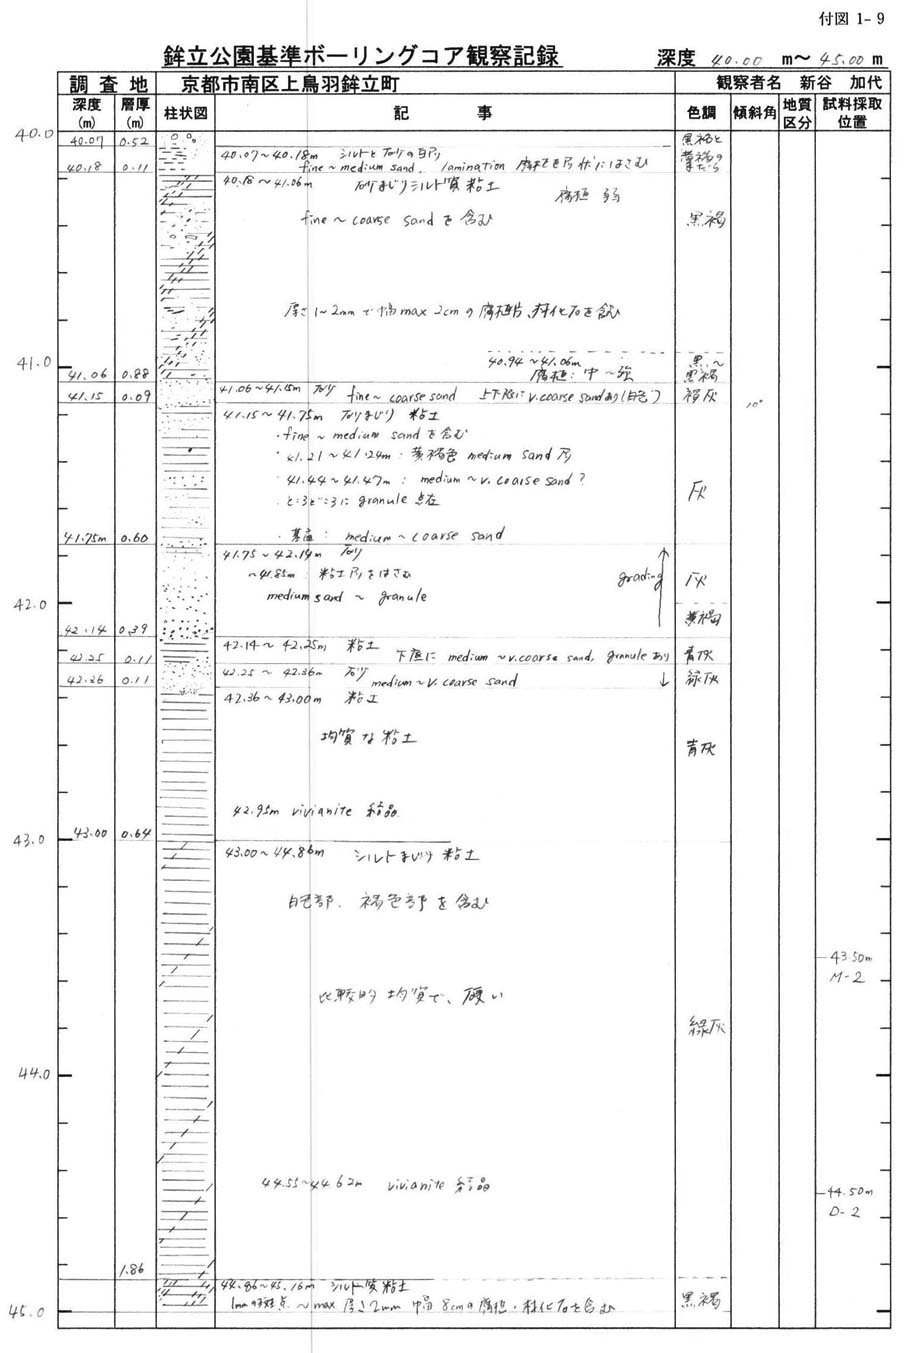 付図 1-9
鉾立公園基準ボーリングコア観察記録
深度 40.00 m～ 45.00 m
調査地 京都市南区上鳥羽鉾立町 観察者名 新谷 加代
深度(m) 層厚(m) 柱状図 記事 色調 傾斜角 地質区分 試料採取位置
40.0
40.07 0.52
黒褐と
40.07～40.18m シルトと砂の互層
fine～medium sand. lamination
40.18 0.11
40.18～41.06m 砂まじりシルト質粘土
腐植 弱
fine～coarse sand を含む
黒褐
厚さ1～2mmで幅max 2cmの腐植片、材化石を含む
41.0
40.94～41.06m
腐植：中～強
黒～
黒褐
41.06 0.88
41.06～41.15m 砂 fine～coarse sand 上下位に v.coarse sandあり(白色)
褐灰
41.15 0.09
10°
41.15～41.75m 砂まじり 粘土
・fine～medium sandを含む
・41.21～41.24m：黄褐色 medium sand 層
・41.44～41.47m：medium～v.coarse sand?
・ところどころに granule 点在
灰
・基底：medium～coarse sand
41.75m 0.60
41.75～42.14m 砂
～41.85m：粘土層をはさむ
medium sand ～ granule
grading
灰
42.0
黄褐
42.14 0.39
42.14～42.25m 粘土
下底に medium～v.coarse sand, granuleあり
青灰
42.25 0.11
42.25～42.36m 砂
medium～v.coarse sand
緑灰
42.36 0.11
42.36～43.00m 粘土
均質な粘土
青灰
42.95m vivianite 結晶
43.0
43.00 0.64
43.00～44.86m シルトまじり粘土
白色部、褐色部を含む
43.50m
M-2
比較的均質で、硬い
緑灰
44.0
44.55～44.62m vivianite 結晶
44.50m
D-2
1.86
44.86～45.16m シルト質粘土
1mmの斑点～max 厚さ2mm 幅8cmの腐植・材化石を含む
黒褐
45.0